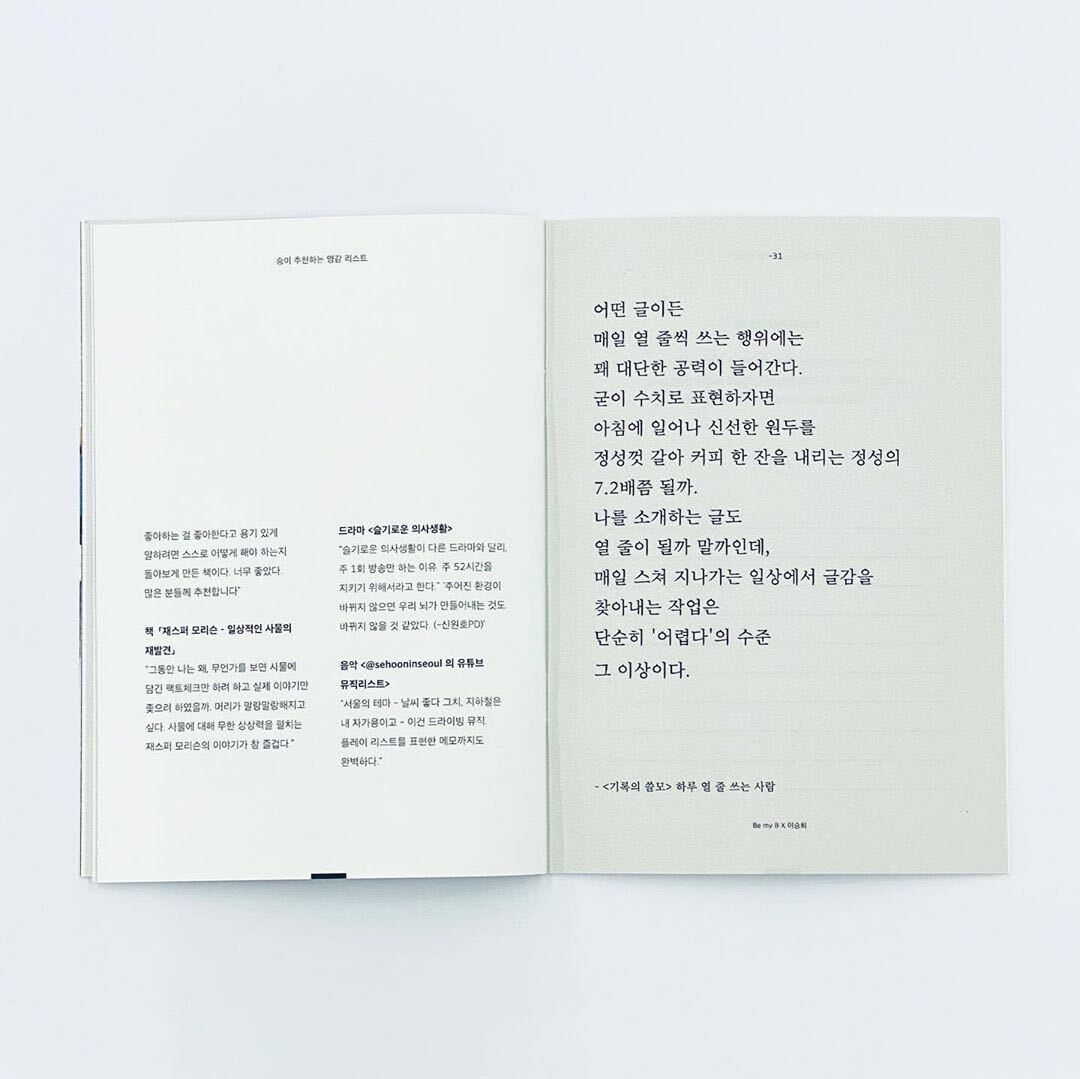 숭이 추천하는 영감 리스트
좋아하는 걸 좋아한다고 용기 있게
말하려면 스스로 어떻게 해야 하는지
돌아보게 만든 책이다. 너무 좋았다.
많은 분들께 추천합니다"
책 「재스퍼 모리슨 - 일상적인 사물의
재발견」
"그동안 나는 왜, 무언가를 보면 사물에
담긴 팩트체크만 하려 하고 실제 이야기만
좇으려 하였을까. 머리가 말랑말랑해지고
싶다. 사물에 대해 무한 상상력을 펼치는
재스퍼 모리슨의 이야기가 참 즐겁다."
드라마 <슬기로운 의사생활>
"슬기로운 의사생활이 다른 드라마와 달리,
주 1회 방송만 하는 이유. 주 52시간을
지키기 위해서라고 한다." '주어진 환경이
바뀌지 않으면 우리 뇌가 만들어내는 것도
바뀌지 않을 것 같았다. (-신원호PD)'
음악 <@sehooninseoul 의 유튜브
뮤직리스트>
"서울의 테마 - 날씨 좋다 그치, 지하철은
내 자가용이고 - 이건 드라이빙 뮤직.
플레이 리스트를 표현한 메모까지도
완벽하다."
-31
어떤 글이든
매일 열 줄씩 쓰는 행위에는
꽤 대단한 공력이 들어간다.
굳이 수치로 표현하자면
아침에 일어나 신선한 원두를
정성껏 갈아 커피 한 잔을 내리는 정성의
7.2배쯤 될까.
나를 소개하는 글도
열 줄이 될까 말까인데,
매일 스쳐 지나가는 일상에서 글감을
찾아내는 작업은
단순히 '어렵다'의 수준
그 이상이다.
- <기록의 쓸모> 하루 열 줄 쓰는 사람
Be my B X 이승희